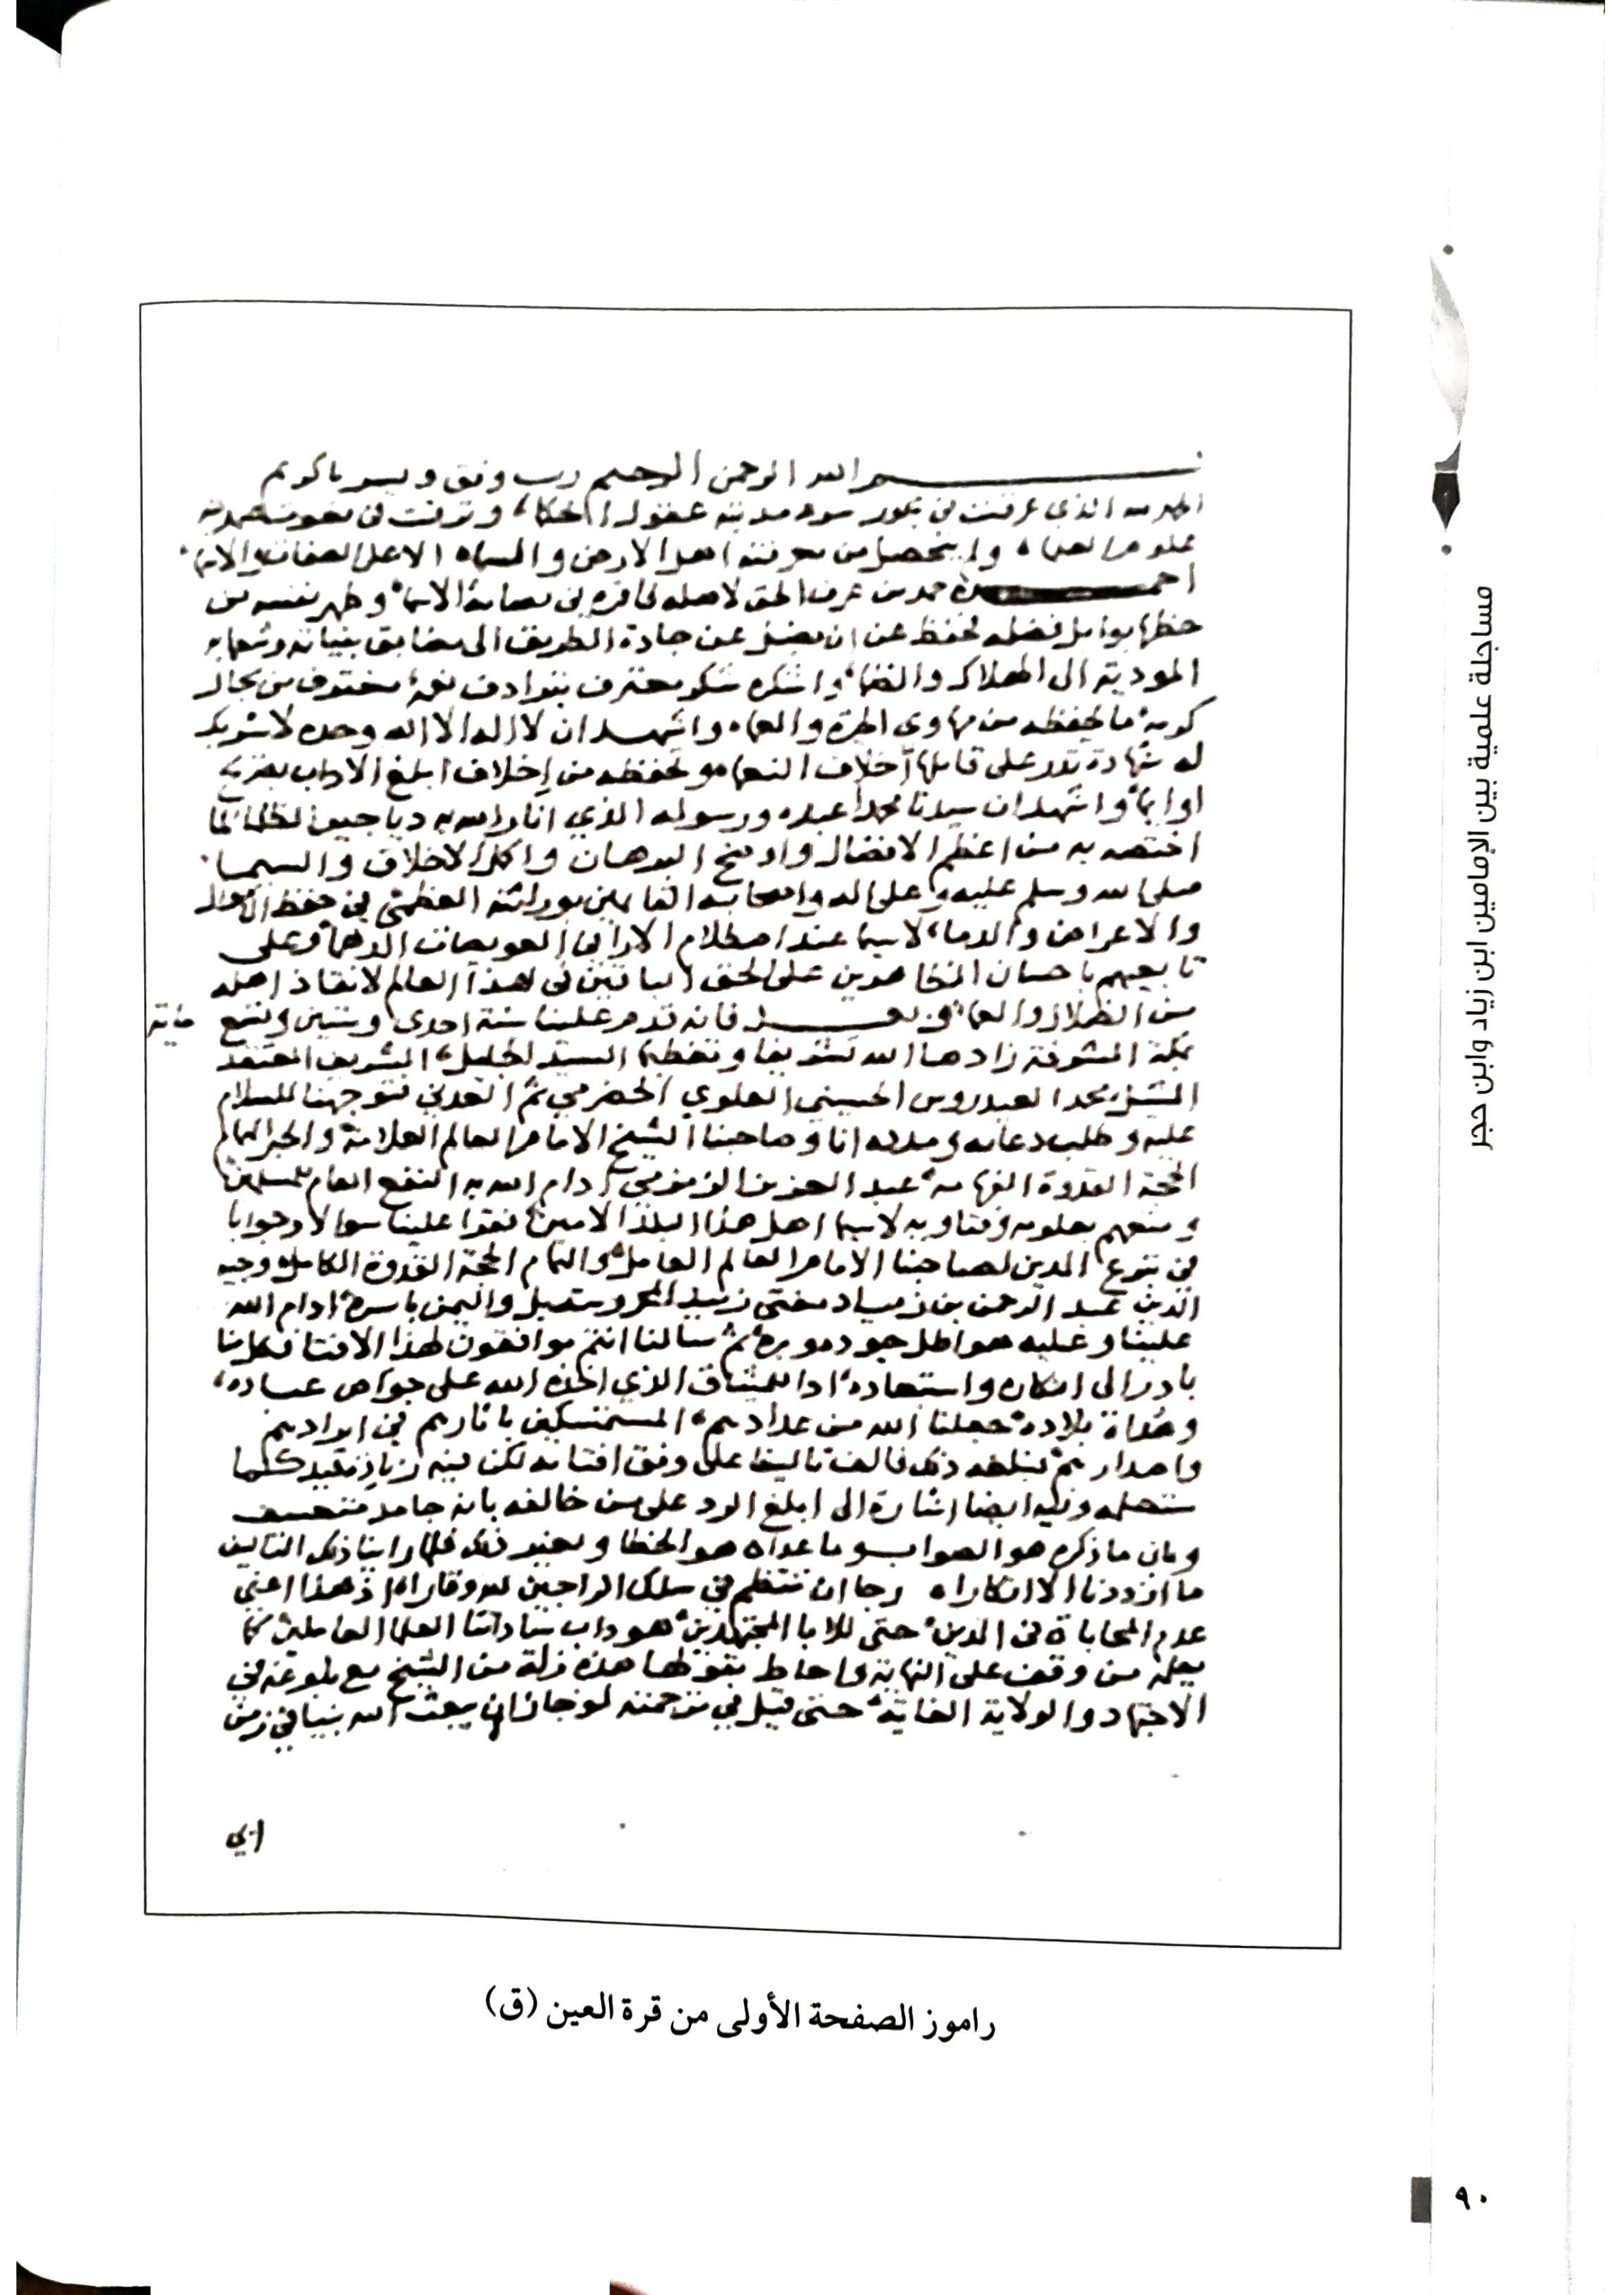 بسم الله الرحمن الرحيم رب وفق ويسر يا كريم
الحمد لله الذي غرقت في بحور سرمديته عقول الحكما، وترقت في
علوم العلما، ولم يتحصل من معرفته اهل الارض والسماء الا على الصفات والاسما
احمده حمد من عرف الحق لاهله وطهر نفسه من
حظها بوابل فضله لتحفظ عن ان يضل عن جادة الطريق الى مضايق
المودية الى الهلاك والفنا، واشكره شكر معترف بترادف نعمه مغترف من بحار
كرمه ما يحفظه من مهاوي الحيرة والعما، واشهد ان لا اله الا الله وحده لا شريك
له شهادة تدر على قايلها اخلاف النعما، وتحفظه من إخلاف ابلغ الاداب
او ايما، واشهد ان سيدنا محمدا عبده ورسوله الذي انار الله به دياجير الظلما لما
اختصه به من اعظم الافضال واوضح البرهان واكمل الاخلاق والسيما
صلى الله وسلم عليه وعلى اله واصحابه القايمين بوراثته العظمى في حفظ الاموال
والاعراض والدما، لا سيما عند اصطلام الارا في العويصات الدهما، وعلى
تابعيهم باحسان المجاهدين على الحق الباقين في هذا العالم لانقاذ اهله
من الضلال والعما، وبعد فانه قدم علينا سنة احدى وستين وتسع
ماية
بمكة المشرفة زادها الله تشريفا وتعظيما السيد الجليل، الشريف المعتقد
محمد العيدروس الحسيني العلوي الحضرمي ثم العدني فتوجهنا للسلام
عليه وطلب دعايه ومدده انا وصاحبنا الشيخ الامام العالم العلامة والحبر الهمام
الحجة القدوة الفهامة عبد العزيز الزمزمي ادام الله به النفع العام للمسلمين
ومتعهم بعلومه وفتاويه لا سيما اهل هذا البلد الامين، فقرا علينا سوالا وجوابا
في تبرع المدين لصاحبنا الامام العالم العامل والهمام الحجة القدوة الكامل وجيه
الدين عبد الرحمن بن زياد مفتي زبيد المحروسة بل واليمن باسره ادام الله
علينا وعليه هواطل جوده وبره، ثم سالنا انتم موافقون لهذا الافتا فكل منا
بادر الى انكاره واستبعاده، ادا للميثاق الذي اخذه الله على خواص عباده،
وهداة بلاده، جعلنا الله من عدادهم، المستمسكين باثارهم في ايرادهم
واصدارهم، ثم بلغه ذلك فالف تاليفا على وفق افتايه لكن فيه زيادة تقييد كما
ستعلمه وفيه ايضا اشارة الى ابلغ الرد على من خالفه بانه جامد متعسف
وبان ما ذكره هو الصواب وما عداه هو الخطا وبعيد ذلك فلما راينا ذلك التاليف
ما ازددنا الا انكارا، رجا ان ننتظم في سلك الراجين لله وقارا، اذ هذا اعني
عدم المحاباة في الدين، حتى للابا المجتهدين، هو داب ساداتنا العلما العاملين كما
يعلمه من وقف على النهاية واحاط بقولها هذه زلة من الشيخ مع بلوغه في
الاجتهاد والولاية الغاية، حتى قيل في ترجمته لو جاز ان يبعث الله نبيا في زمن
ابي
راموز الصفحة الأولى من قرة العين (ق)
مساجلة علمية بين الإمامين ابن زياد وابن حجر
٩٠